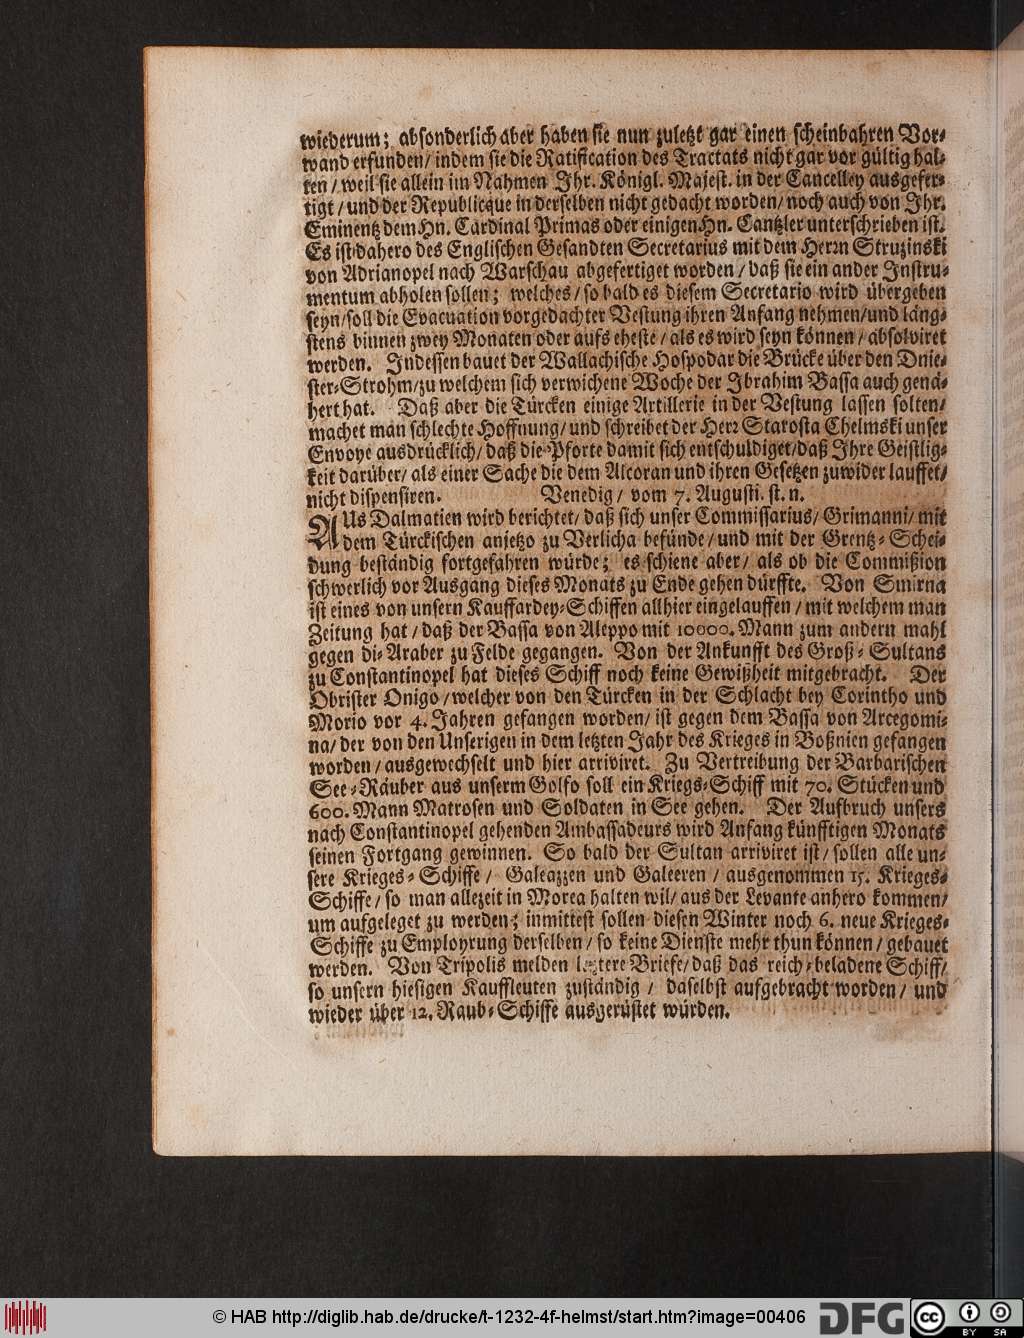 wiederum; absonderlich aber haben sie nun zuletzt gar einen scheinbahren Vor-
wand erfunden/ indem sie die Ratification des Tractats nicht gar vor gültig hal-
ten / weil sie allein im Nahmen Ihr. Königl. Majest. in der Cancelley ausgefer-
tigt / und der Republicque in derselben nicht gedacht worden/ noch auch von Ihr.
Eminentz dem Hn. Cardinal Primas oder einigen Hn. Cantzler unterschrieben ist.
Es ist dahero des Englischen Gesandten Secretarius mit dem Herrn Struzinski
von Adrianopel nach Warschau abgefertiget worden / daß sie ein ander Instru-
mentum abholen sollen; welches / so bald es diesem Secretario wird übergeben
seyn/soll die Evacuation vorgedachter Vestung ihren Anfang nehmen/und läng-
stens binnen zwey Monaten oder aufs eheste / als es wird seyn können / absolviret
werden. Indessen bauet der Wallachische Hospodar die Brücke über den Dnie-
ster-Strohm/zu welchem sich verwichene Woche der Ibrahim Bassa auch genä-
hert hat. Daß aber die Türcken einige Artillerie in der Vestung lassen solten/
machet man schlechte Hoffnung/ und schreibet der Herr Starosta Chelmski unser
Envoye ausdrücklich/ daß die Pforte damit sich entschuldiget/daß Ihre Geistlig-
keit darüber/ als einer Sache die dem Alcoran und ihren Gesetzen zuwider lauffet/
nicht dispensiren. Venedig / vom 7. Augusti. st. n.
AUs Dalmatien wird berichtet/ daß sich unser Commissarius/ Grimanni/ mit
dem Türckischen anjetzo zu Verlicha befünde/ und mit der Grentz-Schei-
dung beständig fortgefahren würde; es schiene aber/ als ob die Commißion
schwerlich vor Ausgang dieses Monats zu Ende gehen dürffte. Von Smirna
ist eines von unsern Kauffardey-Schiffen allhier eingelauffen / mit welchem man
Zeitung hat / daß der Bassa von Aleppo mit 10000. Mann zum andern mahl
gegen di- Araber zu Felde gegangen. Von der Ankunfft des Groß-Sultans
zu Constantinopel hat dieses Schiff noch keine Gewißheit mitgebracht. Der
Obrister Onigo / welcher von den Türcken in der Schlacht bey Corintho und
Morio vor 4. Jahren gefangen worden/ ist gegen dem Bassa von Arcegomi-
na/ der von den Unserigen in dem letzten Jahr des Krieges in Boßnien gefangen
worden / ausgewechselt und hier arriviret. Zu Vertreibung der Barbarischen
See-Räuber aus unserm Golfo soll ein Kriegs-Schiff mit 70. Stücken und
600. Mann Matrosen und Soldaten in See gehen. Der Aufbruch unsers
nach Constantinopel gehenden Ambassadeurs wird Anfang künfftigen Monats
seinen Fortgang gewinnen. So bald der Sultan arriviret ist / sollen alle un-
sere Krieges-Schiffe / Galeazzen und Galeeren / ausgenommen 15. Krieges-
Schiffe / so man allezeit in Morea halten wil/ aus der Levante anhero kommen/
um aufgeleget zu werden; inmittest sollen diesen Winter noch 6. neue Krieges-
Schiffe zu Employrung derselben / so keine Dienste mehr thun können / gebauet
werden. Von Tripolis melden letztere Briefe/ daß das reich-beladene Schiff/
so unsern hiesigen Kauffleuten zuständig / daselbst aufgebracht worden / und
wieder über 12. Raub-Schiffe ausgerüstet würden.
© HAB http://diglib.hab.de/drucke/t-1232-4f-helmst/start.htm?image=00406
DFG
cc BY SA